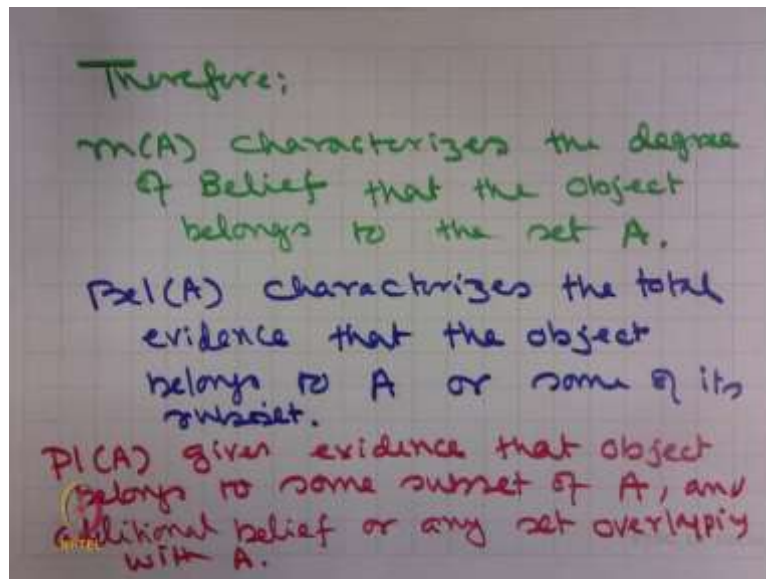 Therefore:
m(A) characterizes the degree
of Belief that the object
belongs to the set A.
Bel(A) characterizes the total
evidence that the object
belongs to A or some of its
subset.
Pl(A) gives evidence that object
belongs to some subset of A, and
additional belief or any set overlapping
with A.
NPTEL